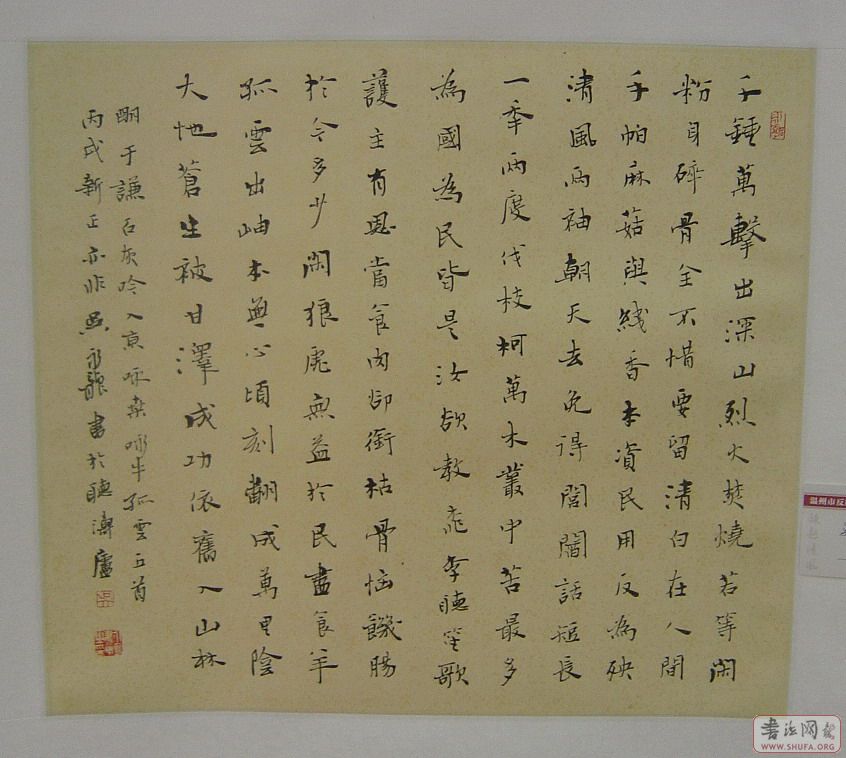 千錘萬擊出深山烈火焚燒若等閑
粉身碎骨全不惜要留清白在人間
手帕麻菇與綫香本資民用反為殃
清風兩袖朝天去免得閭閻話短長
一秊兩度伐枝柯萬木叢中苦最多
為國為民皆是汝却教桃李聽笙歌
護主有恩當食肉卻銜枯骨惱饑腸
於今多少閑狼虎無益於民盡食羊
孤雲出岫本無心頃刻翻成萬里陰
大地蒼生被甘澤成功依舊入山林
明于謙石灰吟入京咏桑咏牛孤雲五首
丙戌新正亦非吳永龍書於聽濤廬
温州市反
書法网
WWW.SHUFA.ORG